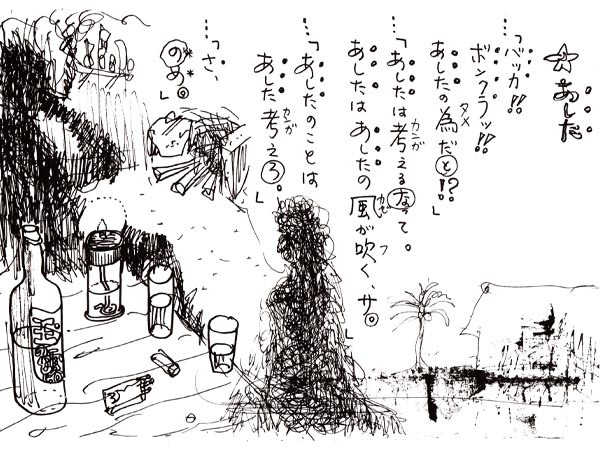 ☆あした
…「バッカ!!
ボンクラッ!!
あしたの為だと!?」
…「あしたは考えるなって。
あしたはあしたの風が吹く、サ。」
…「あしたのことは
あした考えろ。」
…「さ、
のめ。」